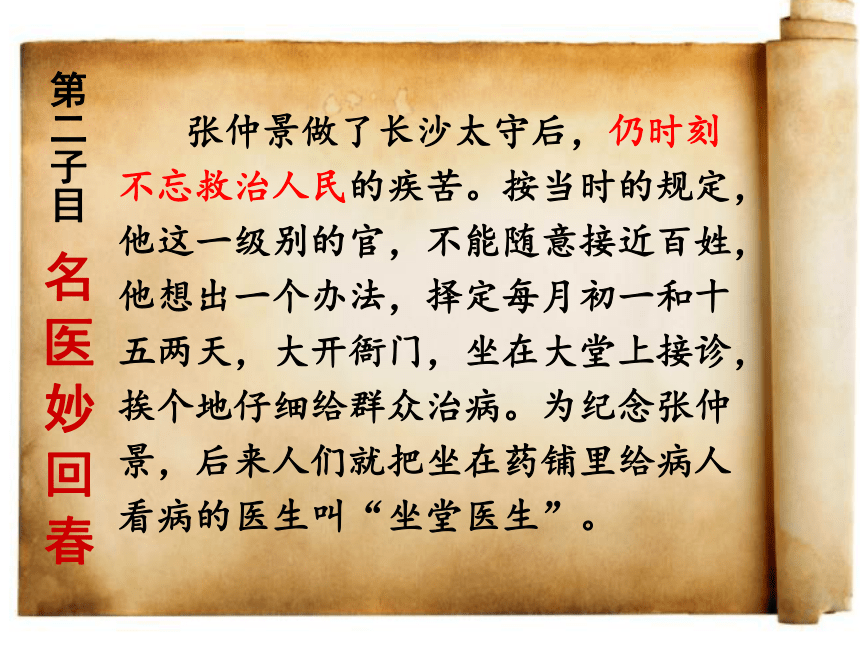 第二子目
名医妙回春
张仲景做了长沙太守后，仍时刻
不忘救治人民的疾苦。按当时的规定，
他这一级别的官，不能随意接近百姓，
他想出一个办法，择定每月初一和十
五两天，大开衙门，坐在大堂上接诊，
挨个地仔细给群众治病。为纪念张仲
景，后来人们就把坐在药铺里给病人
看病的医生叫“坐堂医生”。